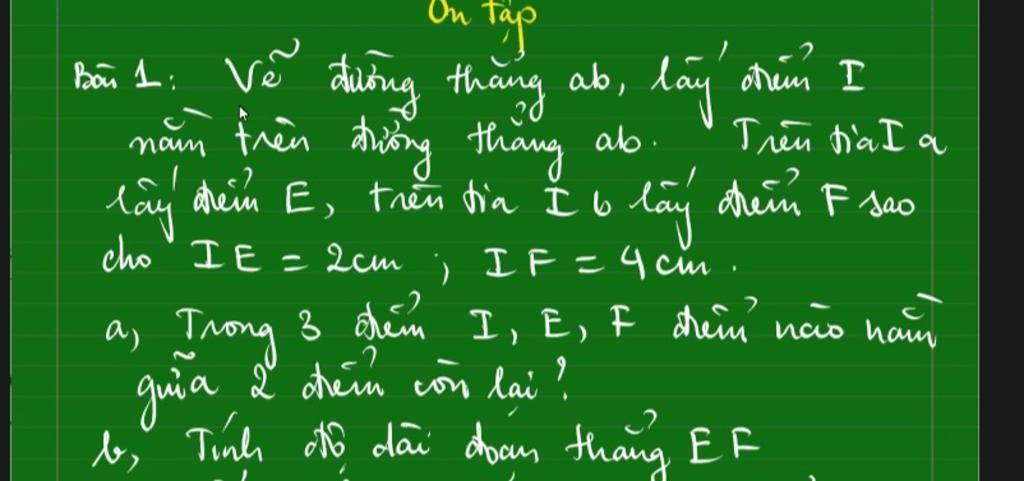 Ôn tập
Bài 1: Vẽ đường thẳng ab, lấy điểm I
nằm trên đường thẳng ab. Trên tia I a
lấy điểm E, trên tia I b lấy điểm F sao
cho IE = 2cm ; IF = 4cm.
a, Trong 3 điểm I, E, F điểm nào nằm
giữa 2 điểm còn lại?
b, Tính độ dài đoạn thẳng EF